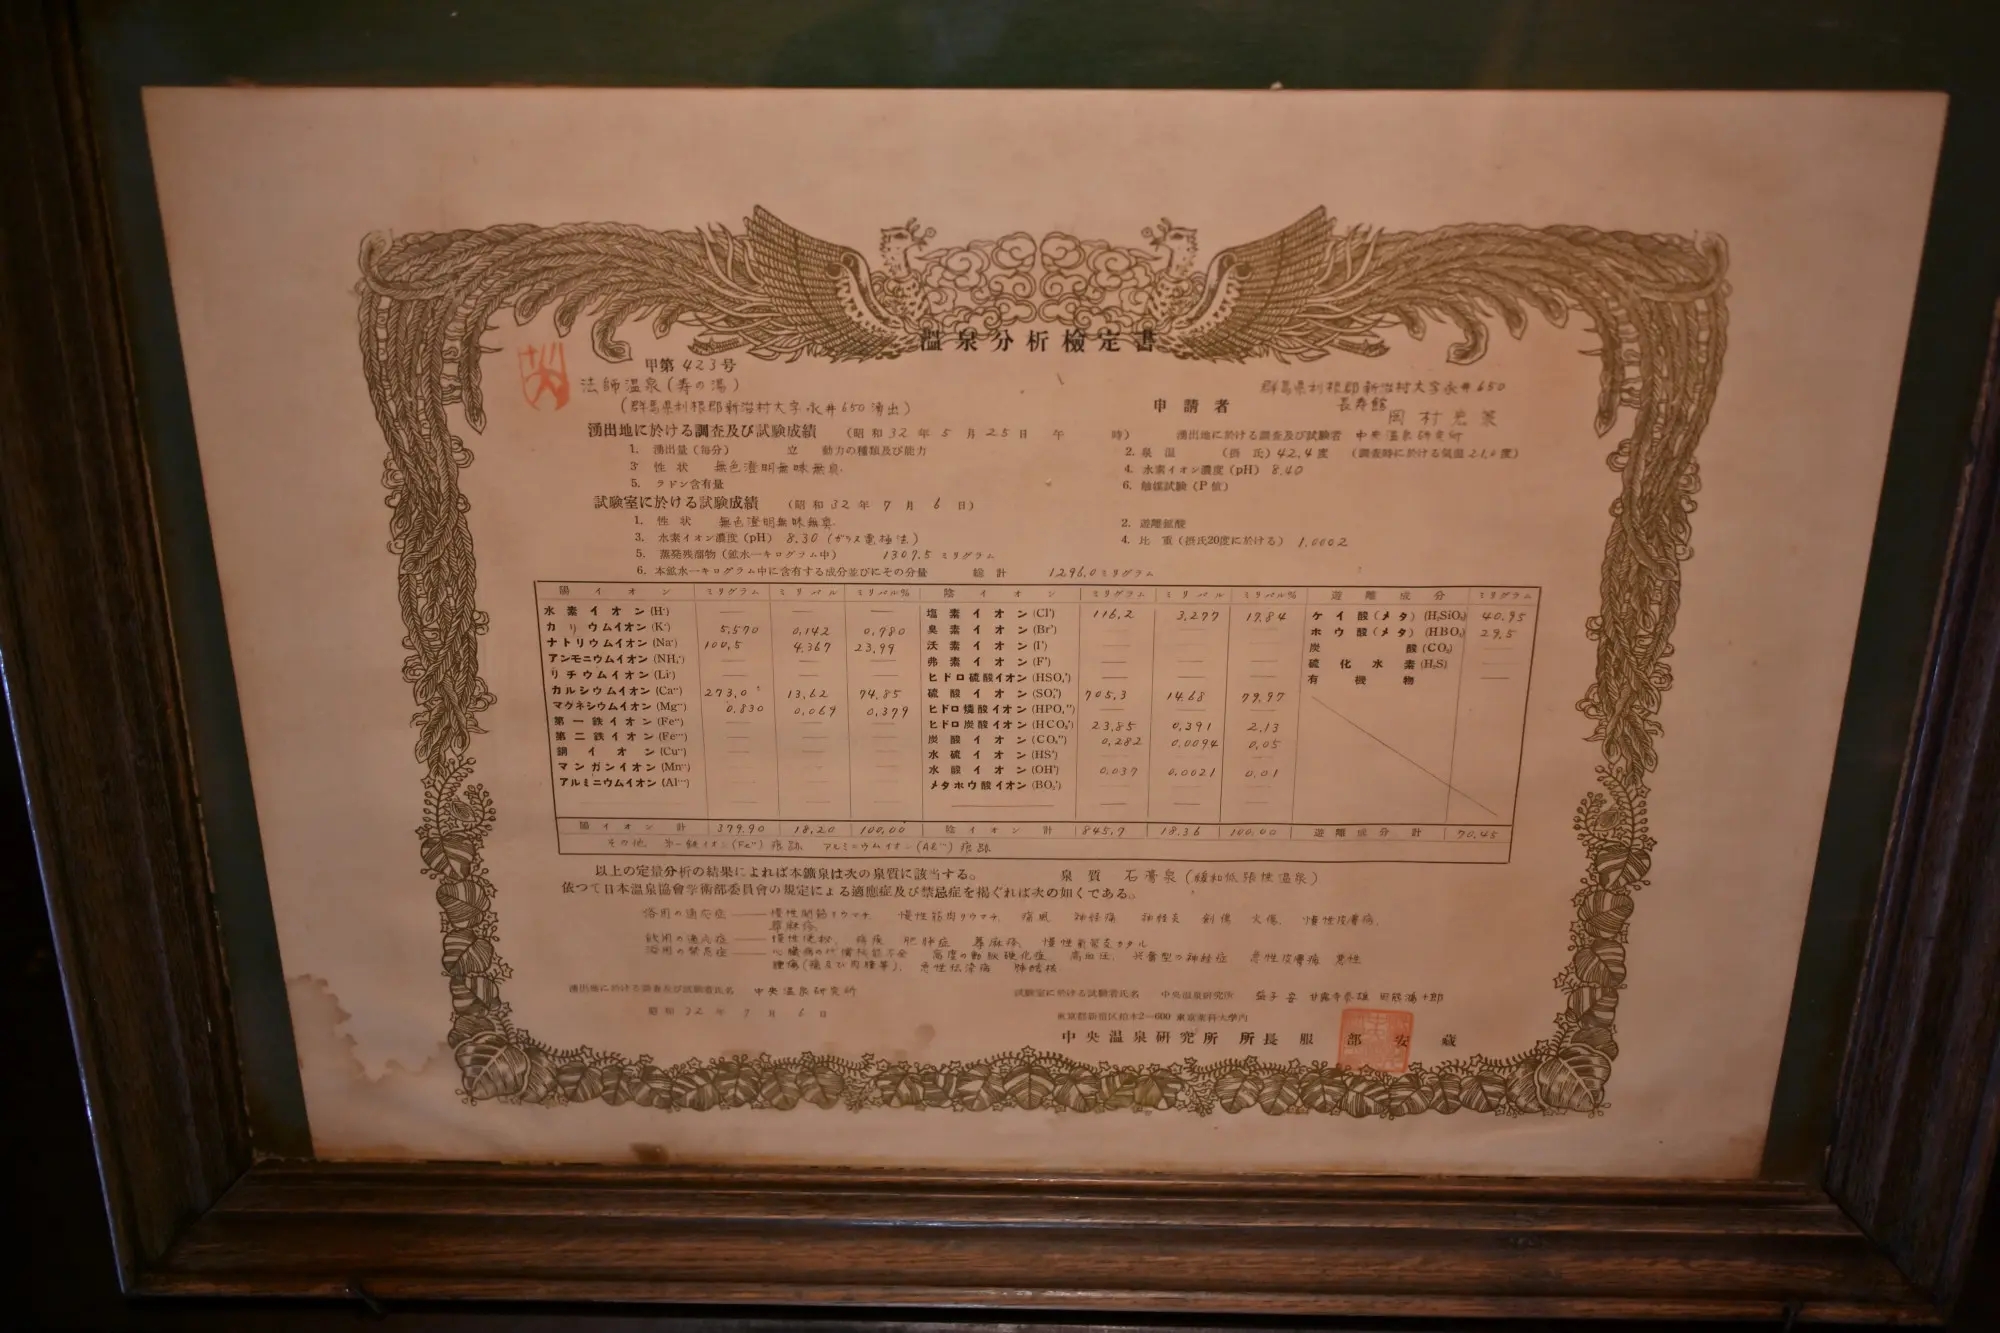 温泉分析檢定書
甲第423号
法師温泉(寿の湯)
(群馬県利根郡新治村大字永井650湧出)
群馬県利根郡新治村大字永井650
申請者 長寿館
岡村
湧出地に於ける調査及び試験成績 (昭和32年5月25日 午 時) 湧出地に於ける調査及び試験者 中央温泉研究所
1. 湧出量(毎分) 立 動力の種類及び能力 2. 泉温 (摂氏)42,4度 (調査時に於ける気温21,0度)
3. 性状 無色澄明無味無臭. 4. 水素イオン濃度(pH) 8,40
5. ラドン含有量 6. 触媒試験(P値)
試験室に於ける試験成績 (昭和32年7月6日)
1. 性状 無色澄明無味無臭. 2. 遊離鉱酸
3. 水素イオン濃度(pH) 8,30(ガラス電極法) 4. 比重(摂氏20度に於ける) 1,0002
5. 蒸発残留物(鉱水一キログラム中) 1307,5ミリグラム
6. 本鉱水一キログラム中に含有する成分並びにその分量 総計 1296,0ミリグラム
陽イオン ミリグラム ミリバル ミリバル% 陰イオン ミリグラム ミリバル ミリバル% 遊離成分 ミリグラム
水素イオン(H˙) — — — 塩素イオン(Cl') 116,2 3,277 17,84 ケイ酸(メタ)(H₂SiO₃) 40,95
カリウムイオン(K˙) 5,570 0,142 0,780 臭素イオン(Br') — — — ホウ酸(メタ)(HBO₂) 29,5
ナトリウムイオン(Na˙) 100,5 4,367 23,99 沃素イオン(I') — — — 炭酸(CO₂) —
アンモニウムイオン(NH₄˙) — — — 弗素イオン(F') — — — 硫化水素(H₂S) —
リチウムイオン(Li˙) — — — ヒドロ硫酸イオン(HSO₄') — — — 有機物 —
カルシウムイオン(Ca˙˙) 273,0 13,62 74,85 硫酸イオン(SO₄'') 705,3 14,68 79,97
マグネシウムイオン(Mg˙˙) 0,830 0,069 0,379 ヒドロ燐酸イオン(HPO₄'') — — —
第一鉄イオン(Fe˙˙) — — — ヒドロ炭酸イオン(HCO₃') 23,85 0,391 2,13
第二鉄イオン(Fe˙˙˙) — — — 炭酸イオン(CO₃'') 0,282 0,0094 0,05
銅イオン(Cu˙˙) — — — 水硫イオン(HS') — — —
マンガンイオン(Mn˙˙) — — — 水酸イオン(OH') 0,037 0,0021 0,01
アルミニウムイオン(Al˙˙˙) — — — メタホウ酸イオン(BO₂') — — —
陽イオン計 379,90 18,20 100,00 陰イオン計 845,7 18,36 100,00 遊離成分計 70,45
その他 第一鉄イオン(Fe˙˙)痕跡 アルミニウムイオン(Al˙˙˙)痕跡
以上の定量分析の結果によれば本鑛泉は次の泉質に該当する。 泉質 石膏泉(緩和低張性温泉)
依つて日本温泉協會学術部委員會の規定による適應症及び禁忌症を掲ぐれば次の如くである。
浴用の適応症 —— 慢性関節リウマチ、慢性筋肉リウマチ、痛風 神経痛 神経炎 創傷 火傷、慢性皮膚病、
蕁麻疹、
飲用の適応症 —— 慢性便秘、 肥胖症 蕁麻疹、
浴用の禁忌症 —— 高度の動脈硬化症、高血圧、 急性皮膚病 悪性
腫瘍(癌及び肉腫等)、急性伝染病 肺結核、
湧出地に於ける調査及び試験者氏名 中央温泉研究所 試験室に於ける試験者氏名 中央温泉研究所 益子安 甘露寺泰雄
昭和32年7月6日
東京都新宿区柏木2—600 東京薬科大学内
中央温泉研究所 所長 服部安蔵